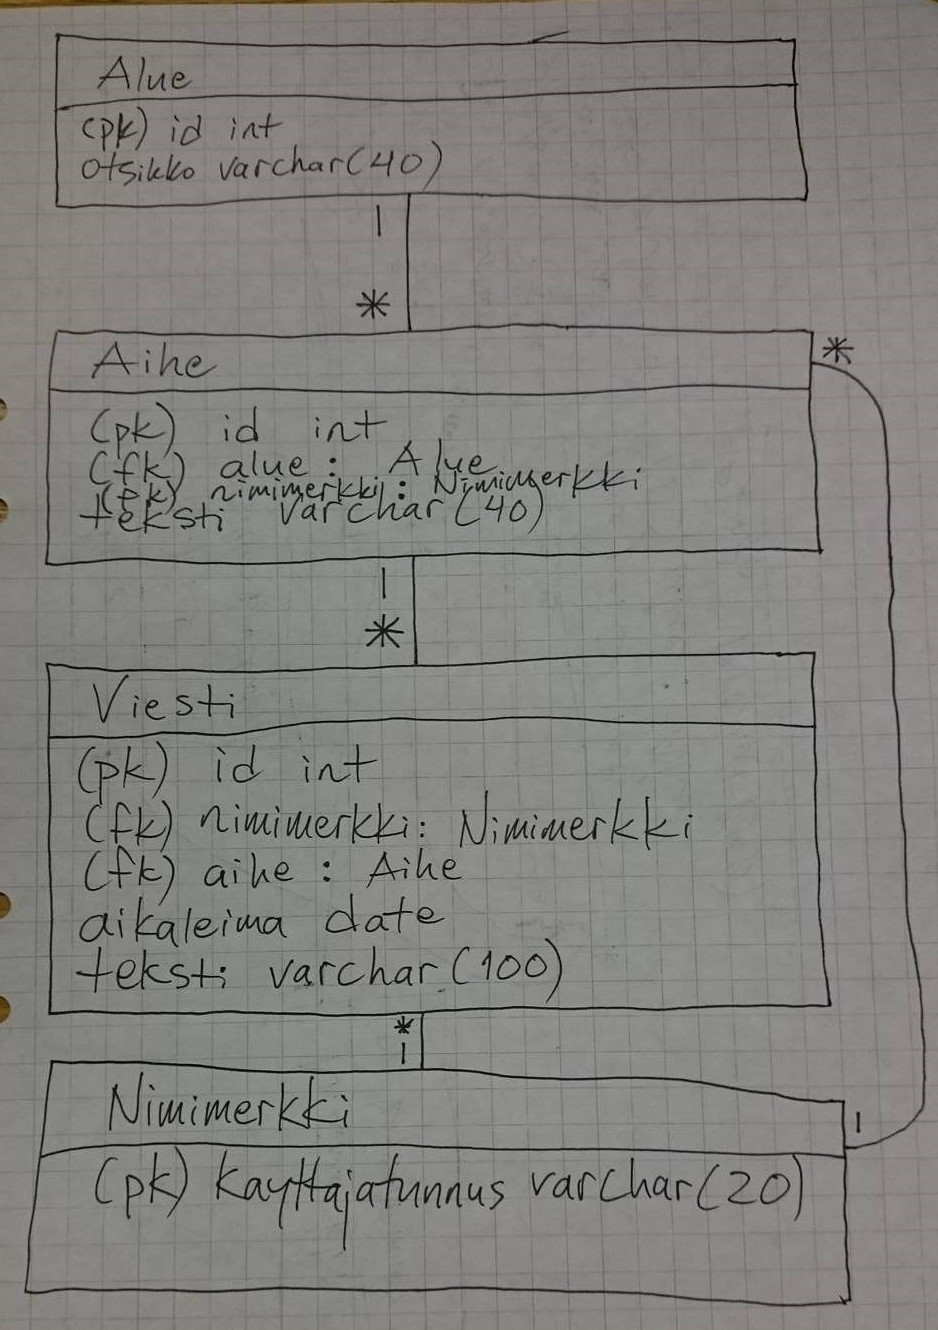 Alue
(pk) id int
otsikko varchar(40)
1
*
Aihe
*
(pk) id int
(fk) alue: Alue
(fk) nimimerkki: Nimimerkki
teksti varchar(40)
1
*
Viesti
(pk) id int
(fk) nimimerkki: Nimimerkki
(fk) aihe: Aihe
aikaleima date
teksti varchar(100)
*
1
Nimimerkki
1
(pk) kayttajatunnus varchar(20)